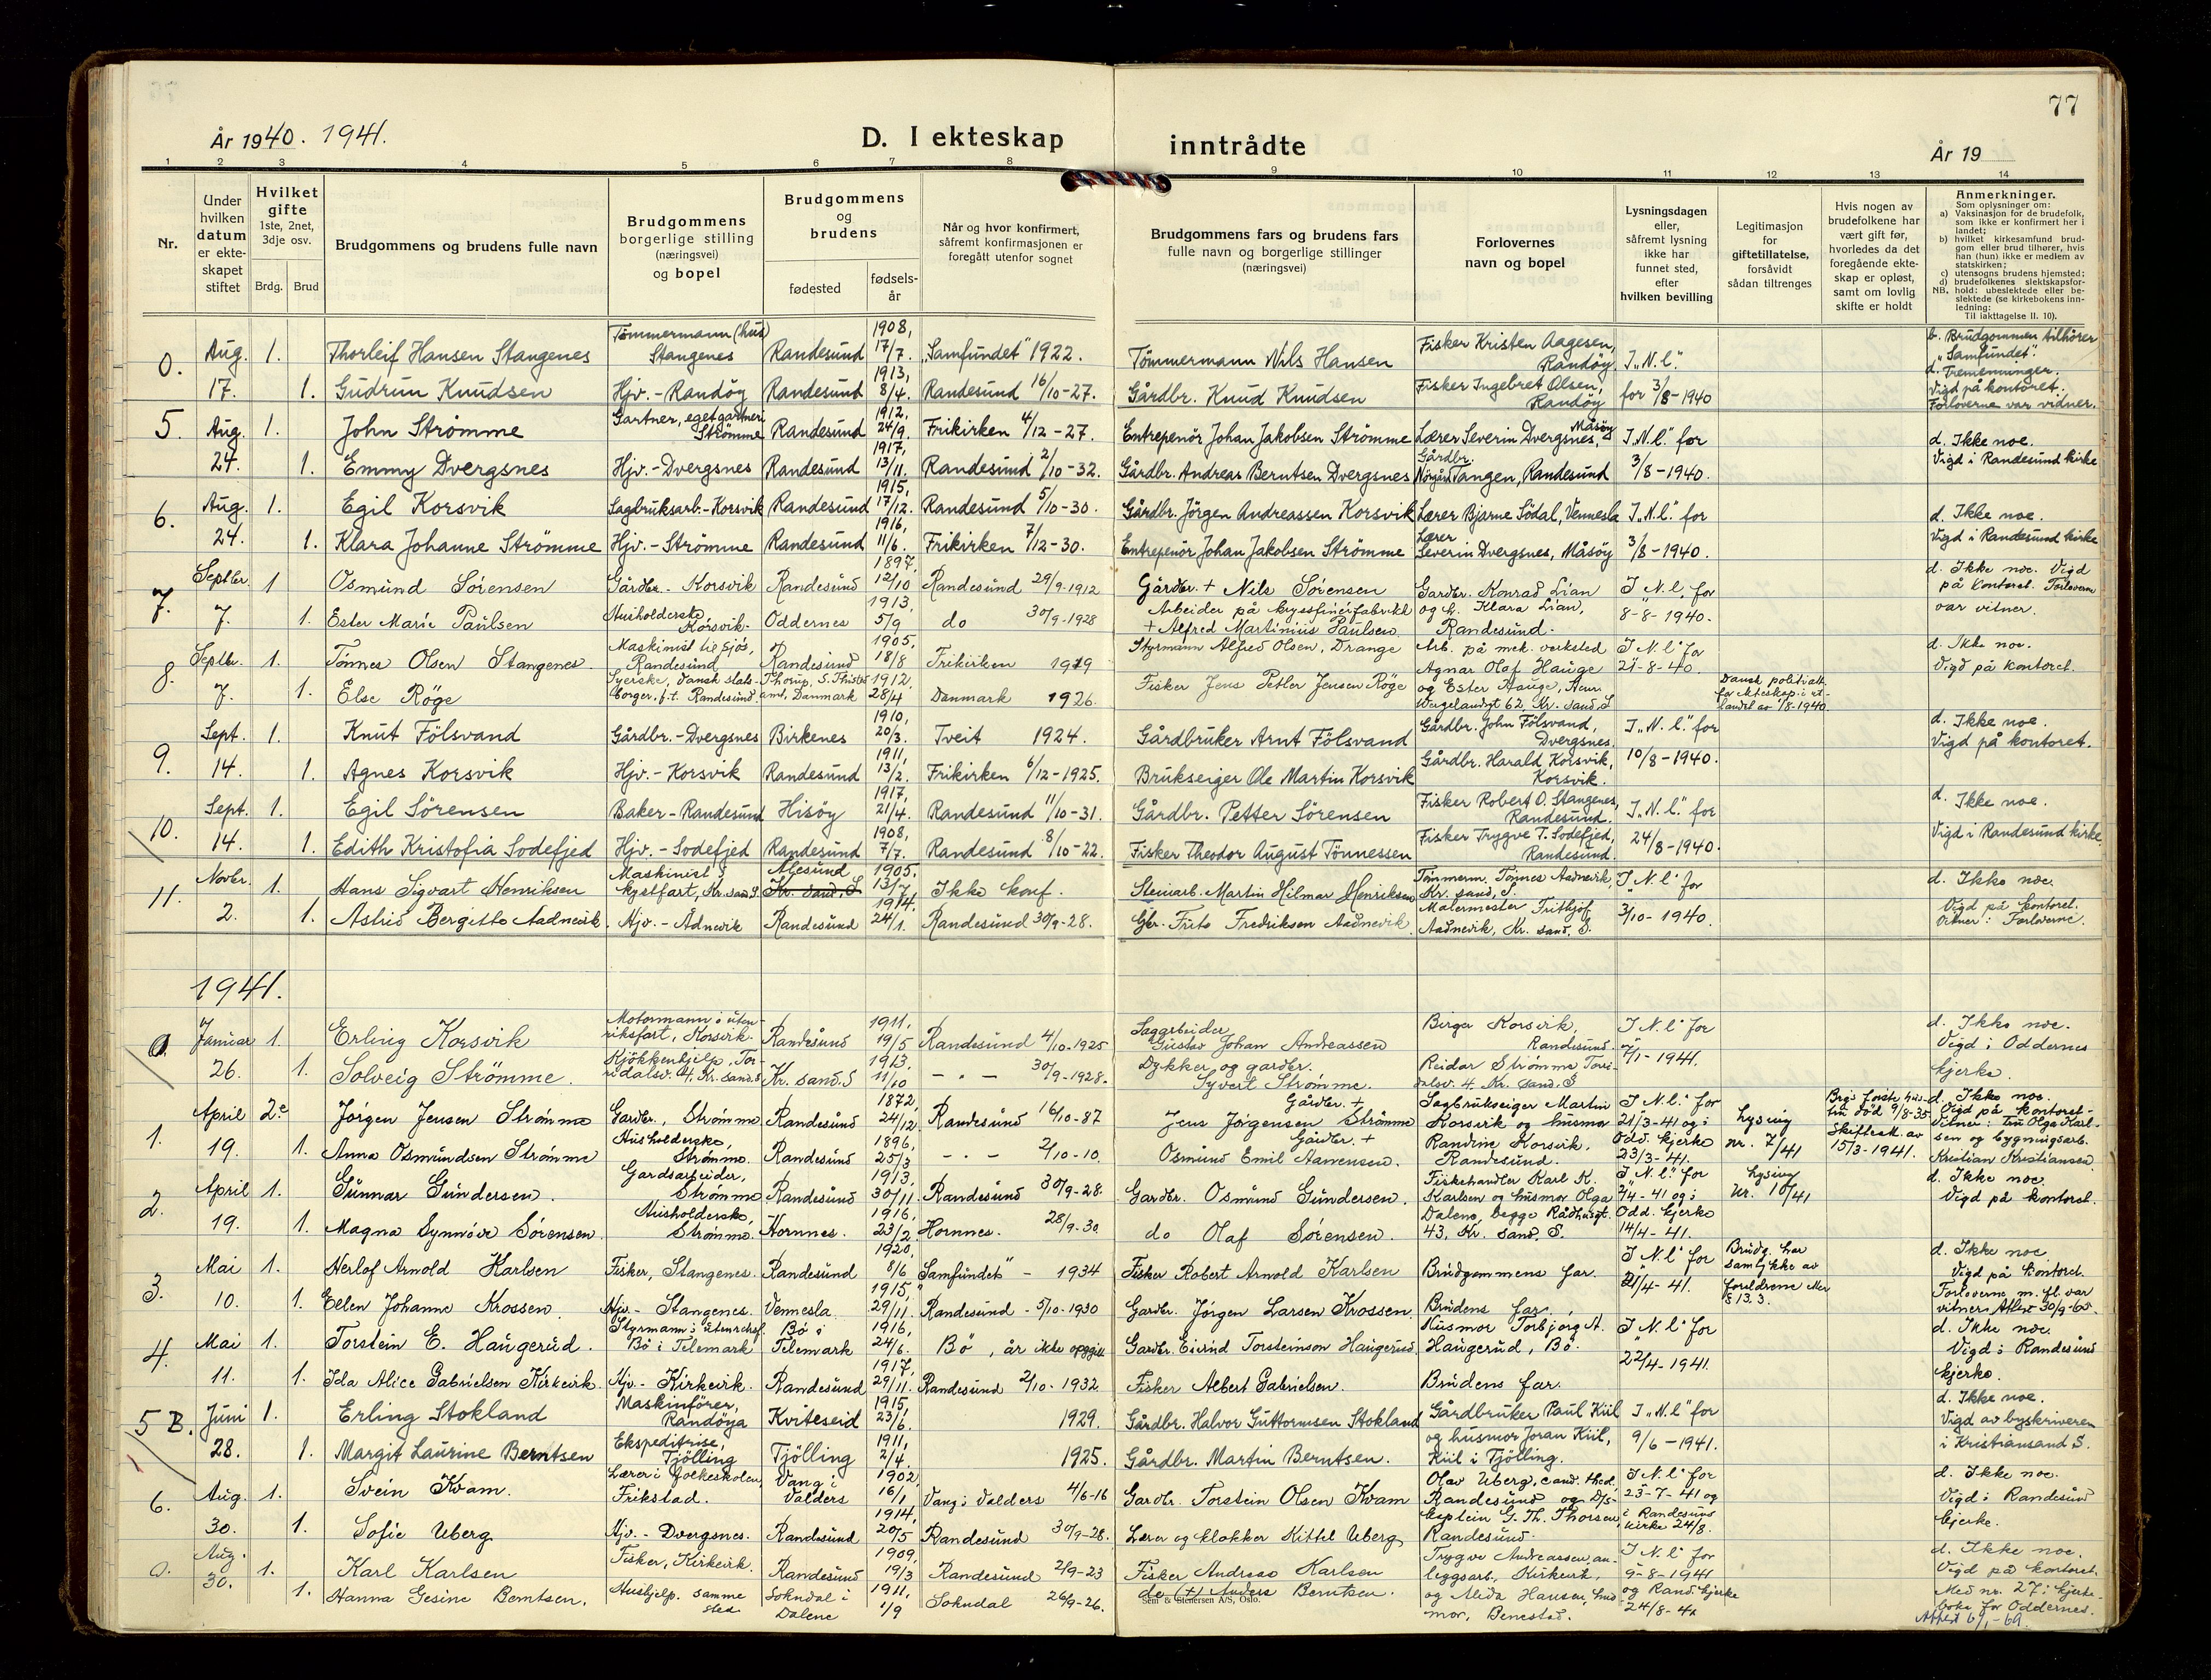 77
År 1940. 1941.
D. I ekteskap
inntrådte
År 19
1 2 3 4 5 6 7 8 9 10 11 12 13 14
Nr.
Under hvilken datum er ekte-skapet stiftet
Hvilket gifte 1ste, 2net, 3dje osv.
Brdg. Brud
Brudgommens og brudens fulle navn
Brudgommens borgerlige stilling (næringsvei) og bopel
Brudgommens og brudens
fødested
fødsels-år
Når og hvor konfirmert, såfremt konfirmasjonen er foregått utenfor sognet
Brudgommens fars og brudens fars fulle navn og borgerlige stillinger (næringsvei)
Forlovernes navn og bopel
Lysningsdagen eller, såfremt lysning ikke har funnet sted, efter hvilken bevilling
Legitimasjon for giftetillatelse, forsåvidt sådan tiltrenges
Hvis nogen av brudefolkene har vært gift før, hvorledes da det foregående ekte-skap er opløst, samt om lovlig skifte er holdt
Anmerkninger.
Som oplysninger om:
a) Vaksinasjon for de brudefolk, som ikke er konfirmert her i landet;
b) hvilket kirkesamfund brud-gom eller brud tilhører, hvis han (hun) ikke er medlem av statskirken;
c) utensogns brudens hjemsted;
d) brudefolkenes slektskapsfor-hold: ubeslektede eller be-slektede (se kirkebokens inn-ledning:
NB.
Til iakttagelse II. 10).
0. Aug. 17. 1. Thorleif Hansen Stangenes Tømmermann (hus) Stangenes Randesund 1908, 17/7. "Samfundet" 1922. Tømmermann Nils Hansen Fisker Kristen Aagesen, Randøy I „N.l". for 3/8-1940 b. Brudgommen tilhører „Samfundet". d. Tremenninger. Vigd på kontoret. Forloverne var vidner.
1. Gudrun Knudsen Hjv.-Randøy Randesund 1913, 8/4. Randesund 16/10-27. Gårdbr. Knud Knudsen Fisker Ingebret Olsen, Randøy
5. Aug. 24. 1. John Strømme Gartner, eget gartneri Strømme Randesund 1912, 24/9. Frikirken 4/12-27. Entrepenør Johan Jakobsen Strømme Lærer Severin Dvergsnes, Måsøy I „N.l." for 3/8-1940. d. Ikke noe. Vigd i Randesund kirke
1. Emmy Dvergsnes Hjv.-Dvergsnes Randesund 1917, 13/11. Randesund 2/10-32. Gårdbr. Andreas Berntsen Dvergsnes Gårdbr. Tangen, Randesund
6. Aug. 24. 1. Egil Korsvik Sagbruksarb.-Korsvik Randesund 1915, 17/12. Randesund 5/10-30. Gårdbr. Jörgen Andreassen Korsvik Lærer Bjarne Södal, Vennesla I „N.l." for 3/8-1940. d. Ikke noe. Vigd i Randesund kirke
1. Klara Johanne Strömme Hjv.-Strömme Randesund 1916, 11/6. Frikirken 7/12-30. Entrepenör Johan Jakobsen Strömme Lærer Severin Dvergsnes, Måsöy
7. Septbr. 7. 1 Osmund Sørensen Gårdbr. - Korsvik Randesund 1897, 12/10 Randesund 29/9-1912 Gårdbr. + Nils Sørensen Gardbr. Konrad Lian og h. Klara Lian, Randesund. I N.l. for 8-8-1940. d. Ikke noe. Vigd på kontoret. Forloverne var vitner.
1. Ester Marie Paulsen Husholderske Korsvik. Oddernes 1913, 5/9 do 30/9-1928 Arbeider på + Alfred Martinius Paulsen
8. Septbr. 7. 1. Tønnes Olsen Stangenes. Maskinist til sjøs, Randesund Randesund 1905, 18/8 Frikirken 1919 Styrmann Alfred Olsen, Drange Arb. på mek. verksted Agnar Olaf Hauge og Ester Hauge, Henr. Wergelandsgt 62, Kr. sand. S I N.l" for 21-8-40. d. Ikke noe. Vigd på kontoret.
1. Else Röge Syerske, dansk stats-borger. f.t. Randesund Thorup, S. Thisted amt, Danmark 1912, 28/4 Danmark 1926. Fisker Jens Petter Jensen Røge Dansk politiatt. for ekteskap i ut-landet av 1/8-1940.
9. Sept. 14. 1. Knut Fölsvand Gårdbr.-Dvergsnes Birkenes 1910, 20/3. Tveit 1924. Gårdbruker Arnt Fölsvand Gårdbr. John Fölsvand, Dvergsnes. I „N.l." for 10/8-1940. d. Ikke noe. Vigd på kontoret.
1. Agnes Korsvik Hjv.-Korsvik Randesund 1911, 13/2. Frikirken 6/12-1925. Brukseiger Ole Martin Korsvik Gårdbr. Harald Korsvik, Korsvik.
10. Sept. 14. 1. Egil Sörensen Baker-Randesund Hisöy 1917, 21/4. Randesund 11/10-31. Gårdbr. Petter Sörensen Fisker Robert O. Stangenes, Randesund. I „N.l." for 24/8-1940. d. Ikke noe. Vigd i Randesund kirke
1. Edith Kristofia Sodefjed Hjv.-Sodefjed Randesund 1908, 7/7. Randesund 8/10-22. Fisker Theodor August Tönnessen Fisker Trygve T. Sodefjed, Randesund.
11. Novbr. 2. 1. Hans Sigvart Henriksen Maskinist i kystfart, Kr. sand S. Ålesund Kr. sand. S 1905, 13/7 Ikke konf. Steinarb. Martin Hilmar Henriksen Tömmerm. Tönnes Aadnevik, Kr. sand, S. I „N.l" for 3/10-1940. d. Ikke noe. Vigd på kontoret. Vitner: Forloverne.
1. Astrid Bergitte Aadnevik. Hjv.-Ådnevik Randesund 1914, 24/1. Randesund 30/9-28. Gbr. Frits Fredriksen Aadnevik. Malermester Frithjof Aadnevik, Kr. sand. S.
1941.
0. Januar 26. 1. Erling Korsvik Motormann i uten-riksfart, Korsvik. Randesund 1911, 19/5 Randesund 4/10-1925 Sagarbeider Gustav Johan Andreassen Birger Korsvik, Randesund. I N.l" for 7/1-1941. d. Ikke noe. Vigd i Oddernes kjerke.
1. Solveig Strömme. Kjökkenhjelp, Tor-ridalsv. 4, Kr. sand. S Kr. sand. S 1913, 11/10 - " - 30/9-1928. Dykker og gardbr. Syvert Strømme. Reidar Strømme, Torri-dalsv. 4. Kr. sand. S
1. April 19. 2e Jørgen Jensen Strømme Gardbr., Strømme Randesund 1872, 24/12. Randesund 16/10-87 Gårdbr. + Jens Jørgensen Strømme Sagbrukseiger Martin Korsvik og husmor Randine Korsvik, Randesund. I „N.l." for 21/3-41 og i Odd. kjerke 23/3-41. Lysing nr. 7/41 Brgs første hus-tru död 9/8-35. Skifteatt. av 15/3-1941. d. Ikke noe. Vigd på kontoret- Vitner: fru Olga Karl-sen og bygningsarb. Kristian Kristiansen.
1. Anna Osmundsen Strömme Husholderske, Strømme. Randesund 1896, 25/3 - " - 2/10-10. Gårdbr. + Osmund Emil Aanensen.
2. April 19. 1. Gunnar Gundersen. Gardsarbeider, Strømme Randesund 1913, 30/11. Randesund 30/9-28. Gardbr. Osmund Gundersen. Fiskehandler Karl K. Karlsen og husmor Olga Dalene, begge Rådhusgt. 43, Kr. sand. S. I „N.l." for 7/4-41 og i Odd. kjerke 14/4-41. Lysing Nr. 10/41 d. Ikke noe. Vigd på kontoret.
1. Magna Synnöve Sörensen. Husholderske, Strømme. Hornnes. 1916, 23/2 Hornnes. 28/9-30. do Olaf Sørensen.
3. Mai 10. 1. Herlof Arnold Karlsen Fisker, Stangenes. Randesund 1920, 8/6 „Samfundet" - 1934 Fisker Robert Arnold Karlsen Brudgommens far. I „N.l" for 21/4-41. Brudg. har samtykke av foreldrene § 13.3. d. Ikke noe. Vigd på kontoret. Forloverne m. fl. var vitner. Attest 30/9-65.
1. Ellen Johanne Krossen. Hjv.- Stangenes. Vennesla 1915, 29/11. Randesund - 5/10-1930 Gardbr. Jørgen Larsen Krossen. Brudens far.
4. Mai 11. 1. Torstein E. Haugerud. Styrmann i utenrsf. Bö i Telemark Bö i Telemark 1916, 24/6. Bö, år ikke oppgitt Gardbr. Eivind Torsteinson Haugerud. Husmor Torbjørg A. Haugerud, Bö. I „N.l" for 22/4-1941. d. Ikke noe. Vigd i Randesund kjerke.
1. Ida Alice Gabrielsen Kirkevik. Hjv.- Kirkevik. Randesund 1917, 29/11. Randesund 2/10-1932. Fisker Albert Gabrielsen. Brudens far.
5 B. Juni 28. 1. Erling Stokland Maskinfører, Randöya Kviteseid 1915, 23/6. 1929. Gårdbr. Halvor Guttormsen Stokland Gårdbruker Paul Kiil og husmor Joran Kiil, Kiil i Tjölling. I „N.l" for 9/6-1941. d. Ikke noe. Vigd av byskriveren i Kristiansand S.
1. Margit Laurine Berntsen Ekspeditrise, Tjölling Tjölling 1911, 2/4. 1925. Gårdbr. Martin Berntsen.
6. Aug. 30. 1. Svein Kvam. Lærer i folkeskolen, Frikstad. Vang i Valders 1902, 16/1 Vang i Valders 4/6-16 Gardbr. Torstein Olsen Kvam Olav Uberg, cand. theol, Randesund og D/S- G. Th. Thorsen, Randesund. I N.l" for 23-7-41 og i Randesund kirke 24/8. d. Ikke noe. Vigd i Randesund kjerke.
1. Sofie Uberg Hjv. - Dvergsnes. Randesund 1914, 20/5 Randesund 30/9-28. Lærer og klokker Kittel Uberg
0. Aug. 30. 1. Karl Karlsen Fisker, Kirkevik. Randesund 1909, 19/3 Randesund 2/9-23 Fisker Andreas Karlsen Trygve Andreassen, an-leggsarb., Kirkevik, og Alida Hansen, hus-mor, Benestad. I N.l" for 9-8-1941 og Rand. kjerke 24/8-41 d. Ikke noe. Vigd på kontoret. Med nr. 27 i kjerke-boka for Oddernes. Attest 6/1-69.
1. Hanna Gesine Berntsen. Hushjelp. samme sted Sokndal i Dalene 1911, 1/9 Sokndal 26/9-26. do (+) Anders Berntsen.
Sem & Stenersen A/S, Oslo.